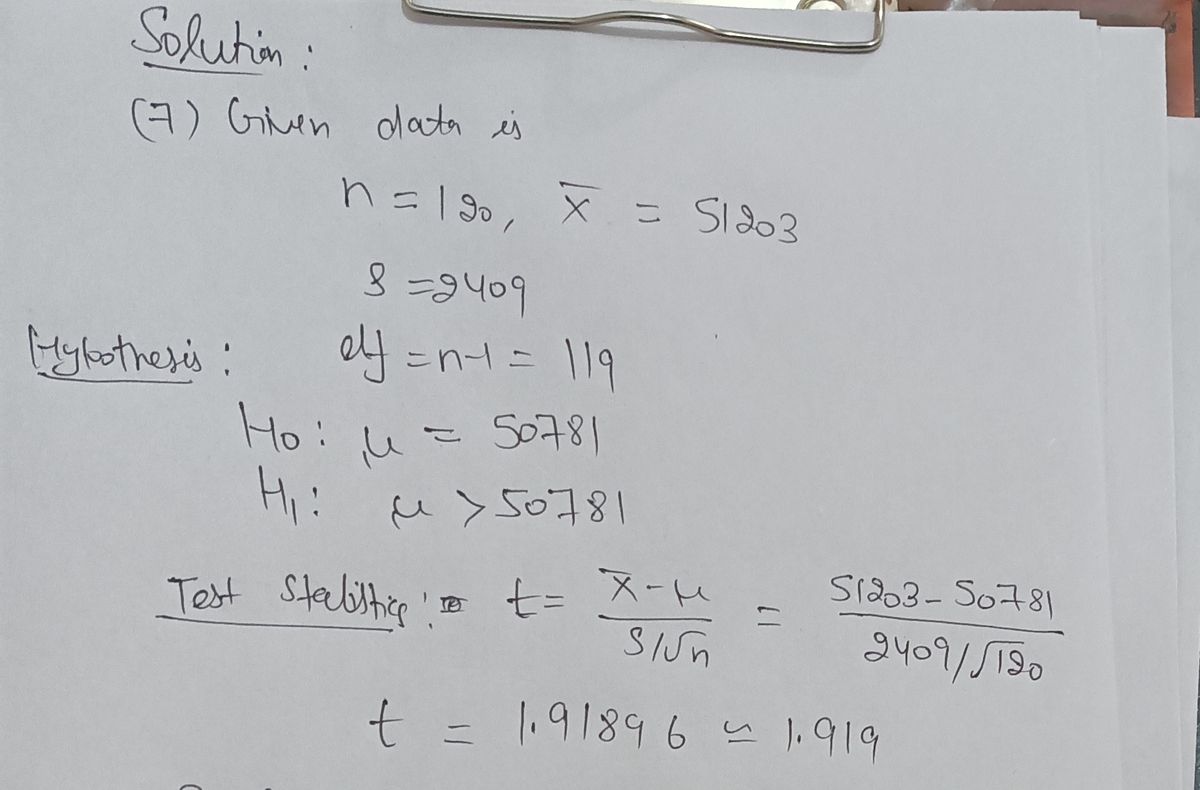 Solution :
(7) Given data is
n = 120, x̄ = 51203
S = 2409
Hypothesis : df = n-1 = 119
H0 : μ = 50781
H1 : μ > 50781
Test Statistics : t = x̄ - μ / S/√n = 51203 - 50781 / 2409/√120
t = 1.91896 ≃ 1.919